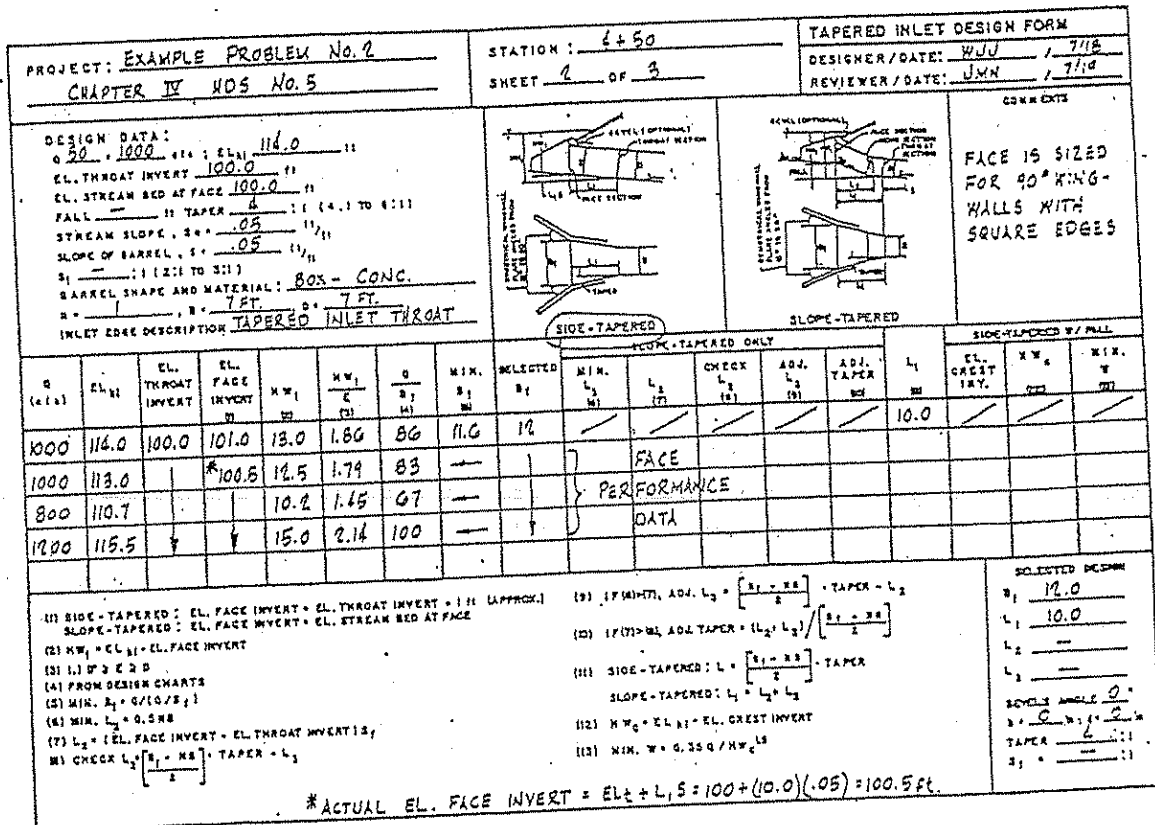 PROJECT: EXAMPLE PROBLEM No. 2
CHAPTER IV HDS No. 5
STATION: 6+50
SHEET 2 OF 3
TAPERED INLET DESIGN FORM
DESIGNER/DATE: WJJ / 7/18
REVIEWER/DATE: JMN / 7/19
DESIGN DATA:
Q 50 = 1000 cfs; ELhi 114.0 ft
EL. THROAT INVERT 100.0 ft
EL. STREAM BED AT FACE 100.0 ft
FALL — ft TAPER 4 :1 (4:1 TO 6:1)
STREAM SLOPE, So = .05 ft/ft
SLOPE OF BARREL, S = .05 ft/ft
Sf — :1 (2:1 TO 3:1)
BARREL SHAPE AND MATERIAL: BOX - CONC.
N = 1, B = 7 FT. D = 7 FT.
INLET EDGE DESCRIPTION TAPERED INLET THROAT
SIDE-TAPERED
SLOPE-TAPERED
COMMENTS
FACE IS SIZED
FOR 90° WING-
WALLS WITH
SQUARE EDGES
SLOPE-TAPERED ONLY
SIDE-TAPERED W/ FALL
Q (cfs) ELhi EL. THROAT INVERT EL. FACE INVERT HWf HWf/E (3) Q/Bf (4) MIN. Bf SELECTED Bf MIN. L3 L2 (7) CHECK L2 ADJ. L3 (9) ADJ. TAPER L1 EL. CREST INV. HWc MIN. W
1000 114.0 100.0 101.0 13.0 1.86 86 11.6 12 10.0
1000 113.0 *100.5 12.5 1.79 83 — FACE
800 110.7 10.2 1.45 67 — PERFORMANCE
1200 115.5 15.0 2.14 100 — DATA
(1) SIDE-TAPERED: EL. FACE INVERT = EL. THROAT INVERT + 1 ft (APPROX.)
SLOPE-TAPERED: EL. FACE INVERT = EL. STREAM BED AT FACE
(2) HWf = ELhi - EL. FACE INVERT
(3) 1.1 D ≥ E ≥ D
(4) FROM DESIGN CHARTS
(5) MIN. Bf = Q/(Q/Bf)
(6) MIN. L3 = 0.5NB
(7) L2 = (EL. FACE INVERT - EL. THROAT INVERT) Sf
(8) CHECK L2 = [Bf - NB / 2] · TAPER - L3
(9) IF (8)>(7), ADJ. L3 = [Bf - NB / 2] · TAPER - L2
(10) IF (7)>(8), ADJ. TAPER = (L2 + L3) / [Bf - NB / 2]
(11) SIDE-TAPERED: L = [Bf - NB / 2] · TAPER
SLOPE-TAPERED: L1 = L2 + L3
(12) HWc = ELhi - EL. CREST INVERT
(13) MIN. W = 0.35 Q / HWc 1.5
SELECTED DESIGN
Bf 12.0
L1 10.0
L2 —
L3 —
BEVELS ANGLE 0 °
b = 0 in, d = 0 in
TAPER 4 :1
Sf = — :1
*ACTUAL EL. FACE INVERT = ELt + L1 S = 100 + (10.0)(.05) = 100.5 ft.